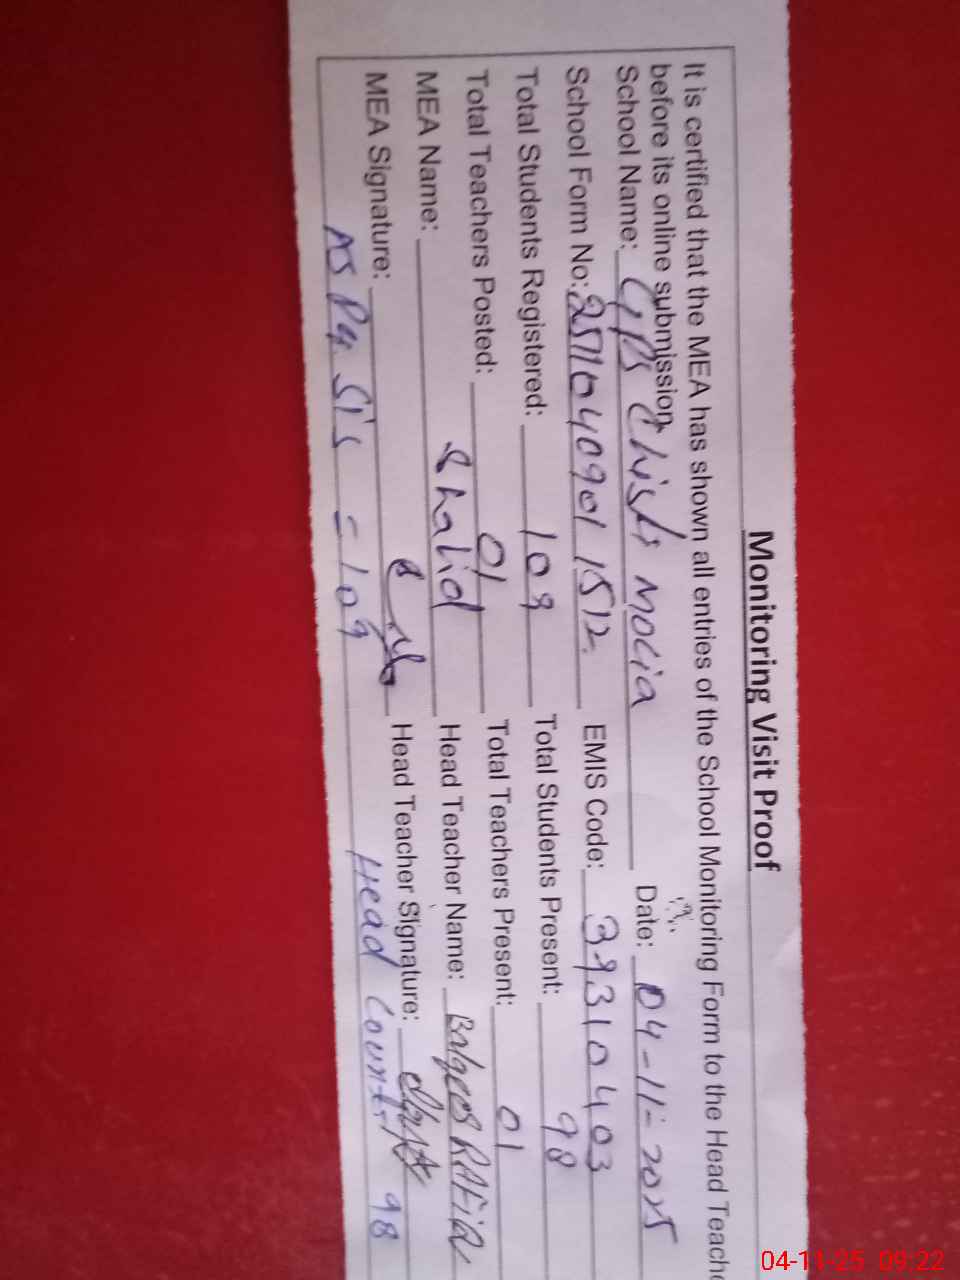 Monitoring Visit Proof
It is certified that the MEA has shown all entries of the School Monitoring Form to the Head Teache
before its online submission.
School Name: GPS Chishti Mocia Date: 04-11-2025
School Form No: 2511040901 1512 EMIS Code: 39310403
Total Students Registered: 109 Total Students Present: 98
Total Teachers Posted: 01 Total Teachers Present: 01
MEA Name: Khalid Head Teacher Name: RAFIQ
MEA Signature: Head Teacher Signature:
AS Per SIS = 109 Head Count 98
04-11-25 09:22